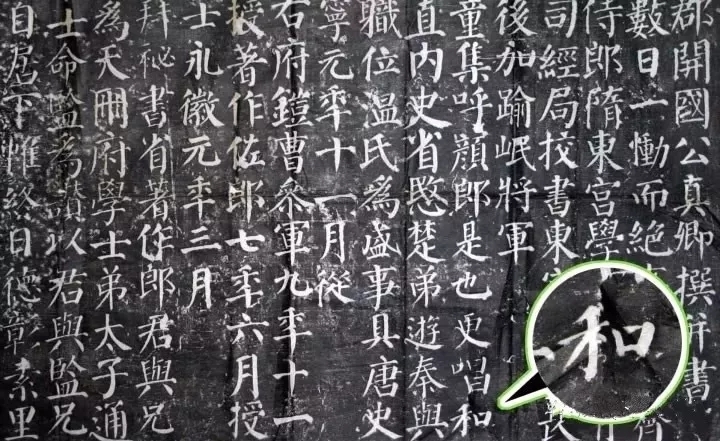 郡開國公真卿撰并書
數日一慟而絕
侍郎隋東宮學
司經局挍書東宮
後加踰岷將軍
童集呼顏郎是也更唱和
直內史省愍楚弟遊秦與
職位溫氏為盛事具唐史
寧元年十一月從
右府鎧曹參軍九年十一
授著作佐郎七年六月授
士永徽元年三月
拜祕書省著作郎君與兄
為天冊府學士弟太子通
士命監為讚以君與監兄
自居下帷終日德彰素里
和